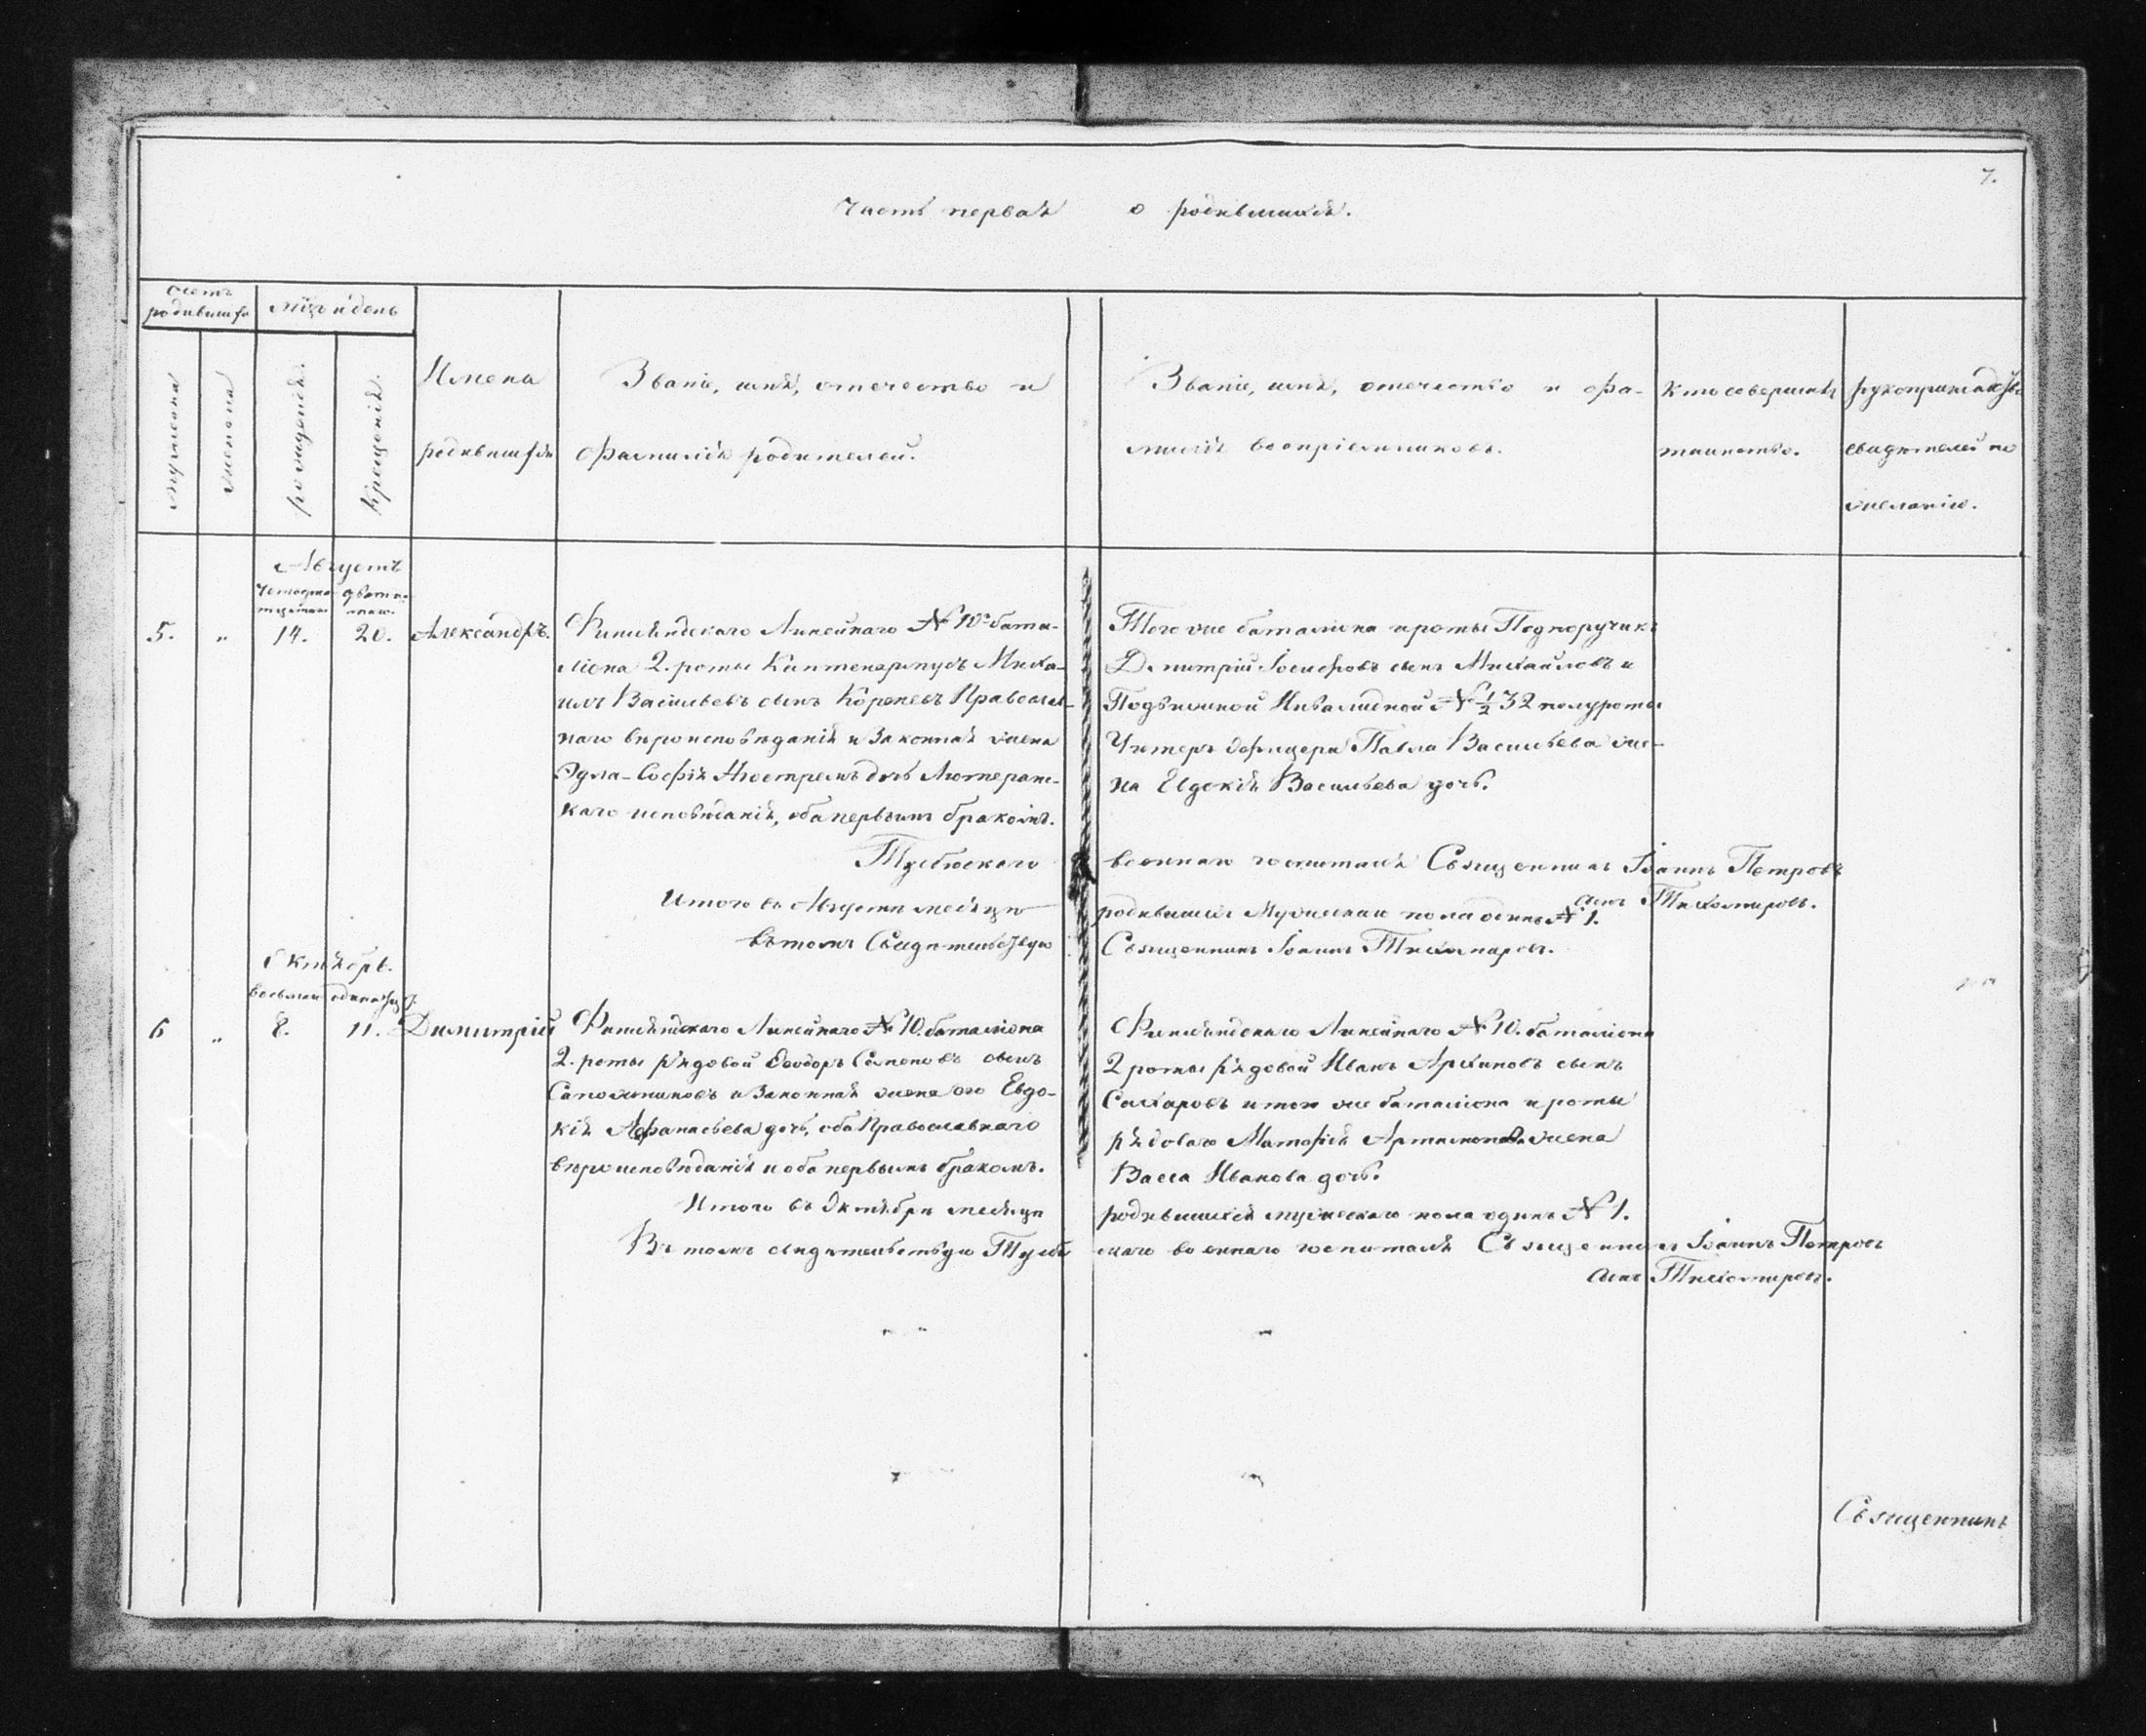 7.
Часть первая о родившихся.
Счетъ родившихся
мѣсяцъ и день
мужеска
женска
рожденія.
Крещенія.
Имена
родившихся
Званіе, имя, отечество и
Фамилія родителей.
Званіе, имя, отечество и фа-
милія воспріемниковъ.
Кто совершалъ
таинство.
рукоприкладство
свидѣтелей по
желанію.
Августъ
5. „ 14. 20. Александръ.
Финляндскаго Линейнаго № 10го бата-
ліона 2. роты Каптенармусъ Миха-
илъ Васильевъ сынъ Кореневъ Православ-
наго вѣроисповѣданія и Законная жена
Эдла-Софія дочь Лютеранс-
каго исповѣданія, оба первымъ бракомъ.
Того же баталіона и роты Подпоручикъ
Дмитрій Іосифовъ сынъ Михайловъ и
Подвижной Инвалидной № ½ 32 полуроты
Унтеръ Офицера Павла Васильева же-
на Евдокія Васильева дочь.
военнаго госпиталя Священникъ Іоаннъ Петровъ
сынъ Тихомировъ.
Итого въ Августѣ месяцѣ родившихся Мужескаго пола одинъ № 1.
въ томъ Свидѣтельствую Священникъ Іоаннъ Тихомировъ.
Октябрь.
6 „ 8. 11. Димитрій
Финляндскаго Линейнаго № 10. баталіона
2. роты рядовой Ѳеодоръ Семеновъ сынъ
Сапожниковъ и Законная жена его Евдо-
кія Афанасьева дочь, оба Православнаго
вѣроисповѣданія и оба первымъ бракомъ.
Финляндскаго Линейнаго № 10. баталіона
2 роты рядовой Иванъ Архиповъ сынъ
Сахаровъ и того же баталіона и роты
рядоваго жена
Васса Иванова дочь.
Итого въ Октябрѣ месяцѣ родившихся мужескаго пола одинъ № 1.
Въ томъ свидѣтельствую военнаго госпиталя Священникъ Іоаннъ Петровъ
сынъ Тихомировъ.
Священникъ